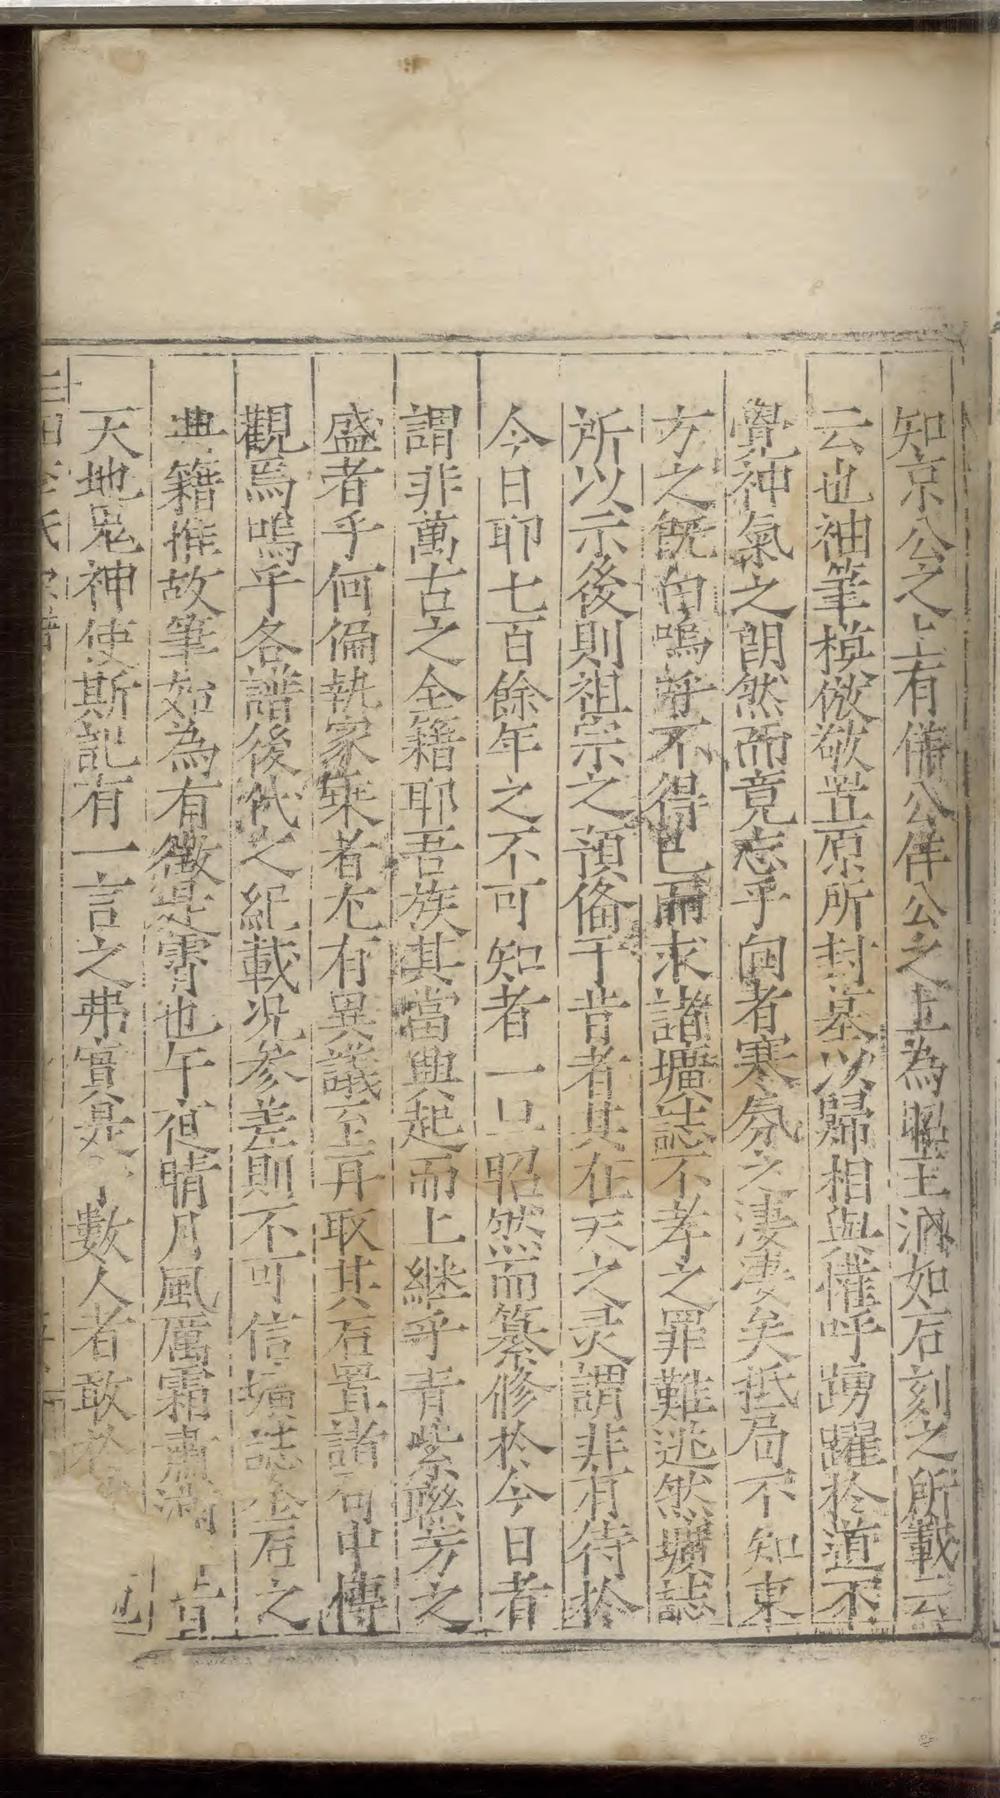 知京公之上有儀公佯公之上為昭王洞如石刻之所載云
云也袖筆模倣敬置原所封墓以歸相與催呼踴躍於道不
覺神氣之朗然而竟忘乎向者寒氛之淒淒矣抵局不知東
方之旣白嗚呼不得已而求諸壙誌不孝之罪難逃然壙誌
所以示後則祖宗之預俻于昔者其在天之灵謂非有待於
今日耶七百餘年之不可知者一旦昭然而纂修於今日者
謂非萬古之全籍耶吾族其當興起而上継乎青紫聯芳之
盛者乎何偏執家乗者尤有異議至再取其石置諸祠中傳
觀焉嗚乎各譜後代之紀載况参差則不可信壙誌金石之
典籍推故筆如為有徵是霄也午夜晴月風厲霜肅
天地鬼神使斯記有一言之弗實是 數人者敢於
三田李氏宗譜